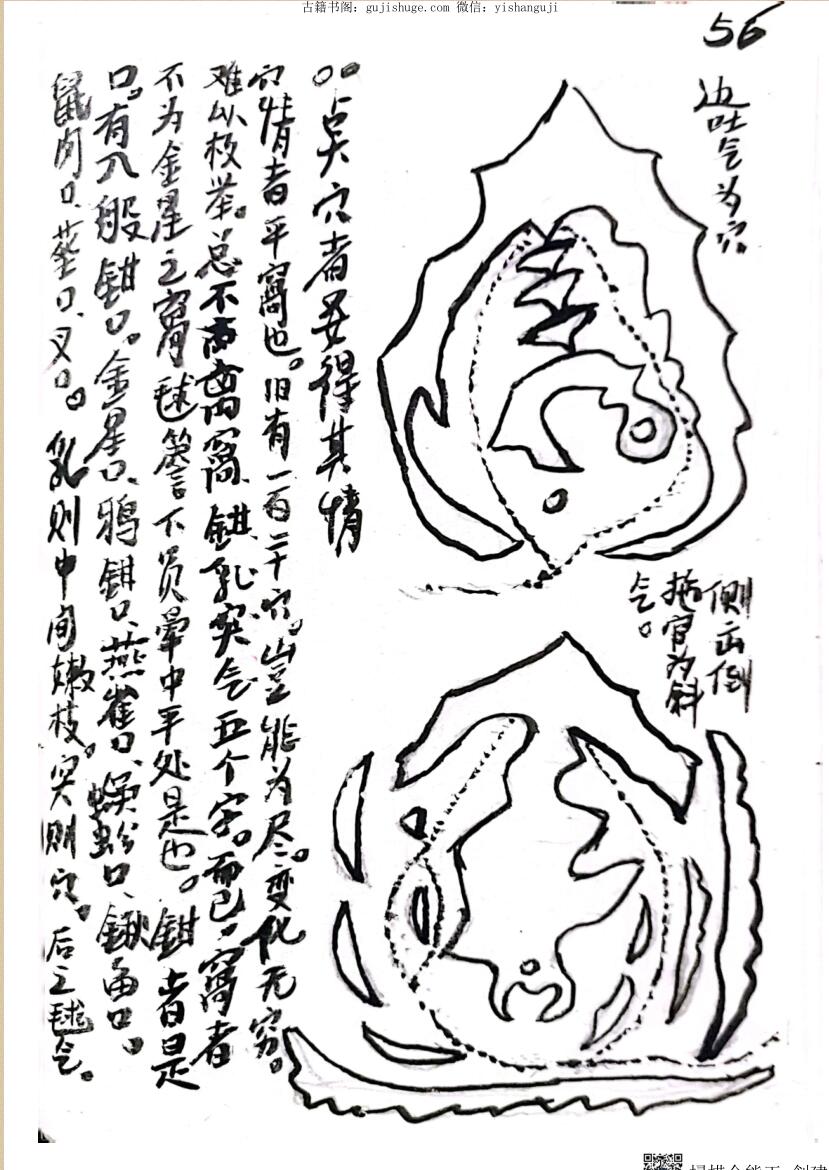 古籍书阁：gujishuge.com 微信：yishanguji
56
边吐气为穴
侧面倒
拖官为斜
气。
○○点穴者要得其情
穴情者平窝也。旧有一百二十穴。岂能为尽。变化无穷。
难以枚举。总不离窝窝、钳乳突气五个字。而已，窝者
不为金星之窝，毬簷下员晕中平处是也。钳者是
口。有八般钳口。金星口、鸦钳口、燕雀口、蜈蚣口、鳅鱼口。
鼠肉口、茎口、叉口。乳则中间嫩枝。突则穴。后之毬气。